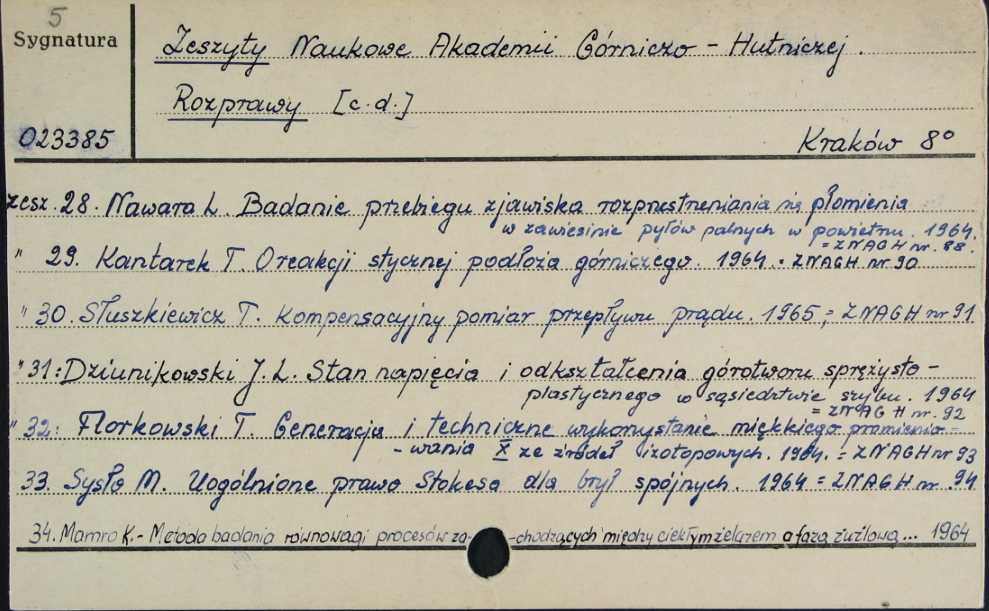 5
Sygnatura
Zeszyty Naukowe Akademii Górniczo - Hutniczej.
Rozprawy [c.d.]
023385
Kraków 8°
zesz. 28. Nawara L. Badanie przebiegu zjawiska rozprzestrzeniania się płomienia
w zawiesinie pyłów palnych w powietrzu. 1964.
= ZNAGH nr. 88.
" 29. Kantarek T. O reakcji stycznej podłoża górniczego. 1964. = ZNAGH nr 90
" 30. Słuszkiewicz T. Kompensacyjny pomiar przepływu prądu. 1965, = ZNAGH nr 91
" 31: Dziunikowski J. L. Stan napięcia i odkształcenia górotworu sprężysto-
plastycznego w sąsiedztwie szybu. 1964
= ZNAGH nr. 92
" 32: Florkowski T. Generacja i techniczne wykorzystanie miękkiego promienio-
-wania X ze źródeł izotopowych. 1964. = ZNAGH nr 93
33. Sysło M. Uogólnione prawo Stokesa dla brył spójnych. 1964 = ZNAGH nr. 94
34. Mamro K. - Metoda badania równowagi procesów za- -chodzących między ciekłym żelazem a fazą żużlową... 1964